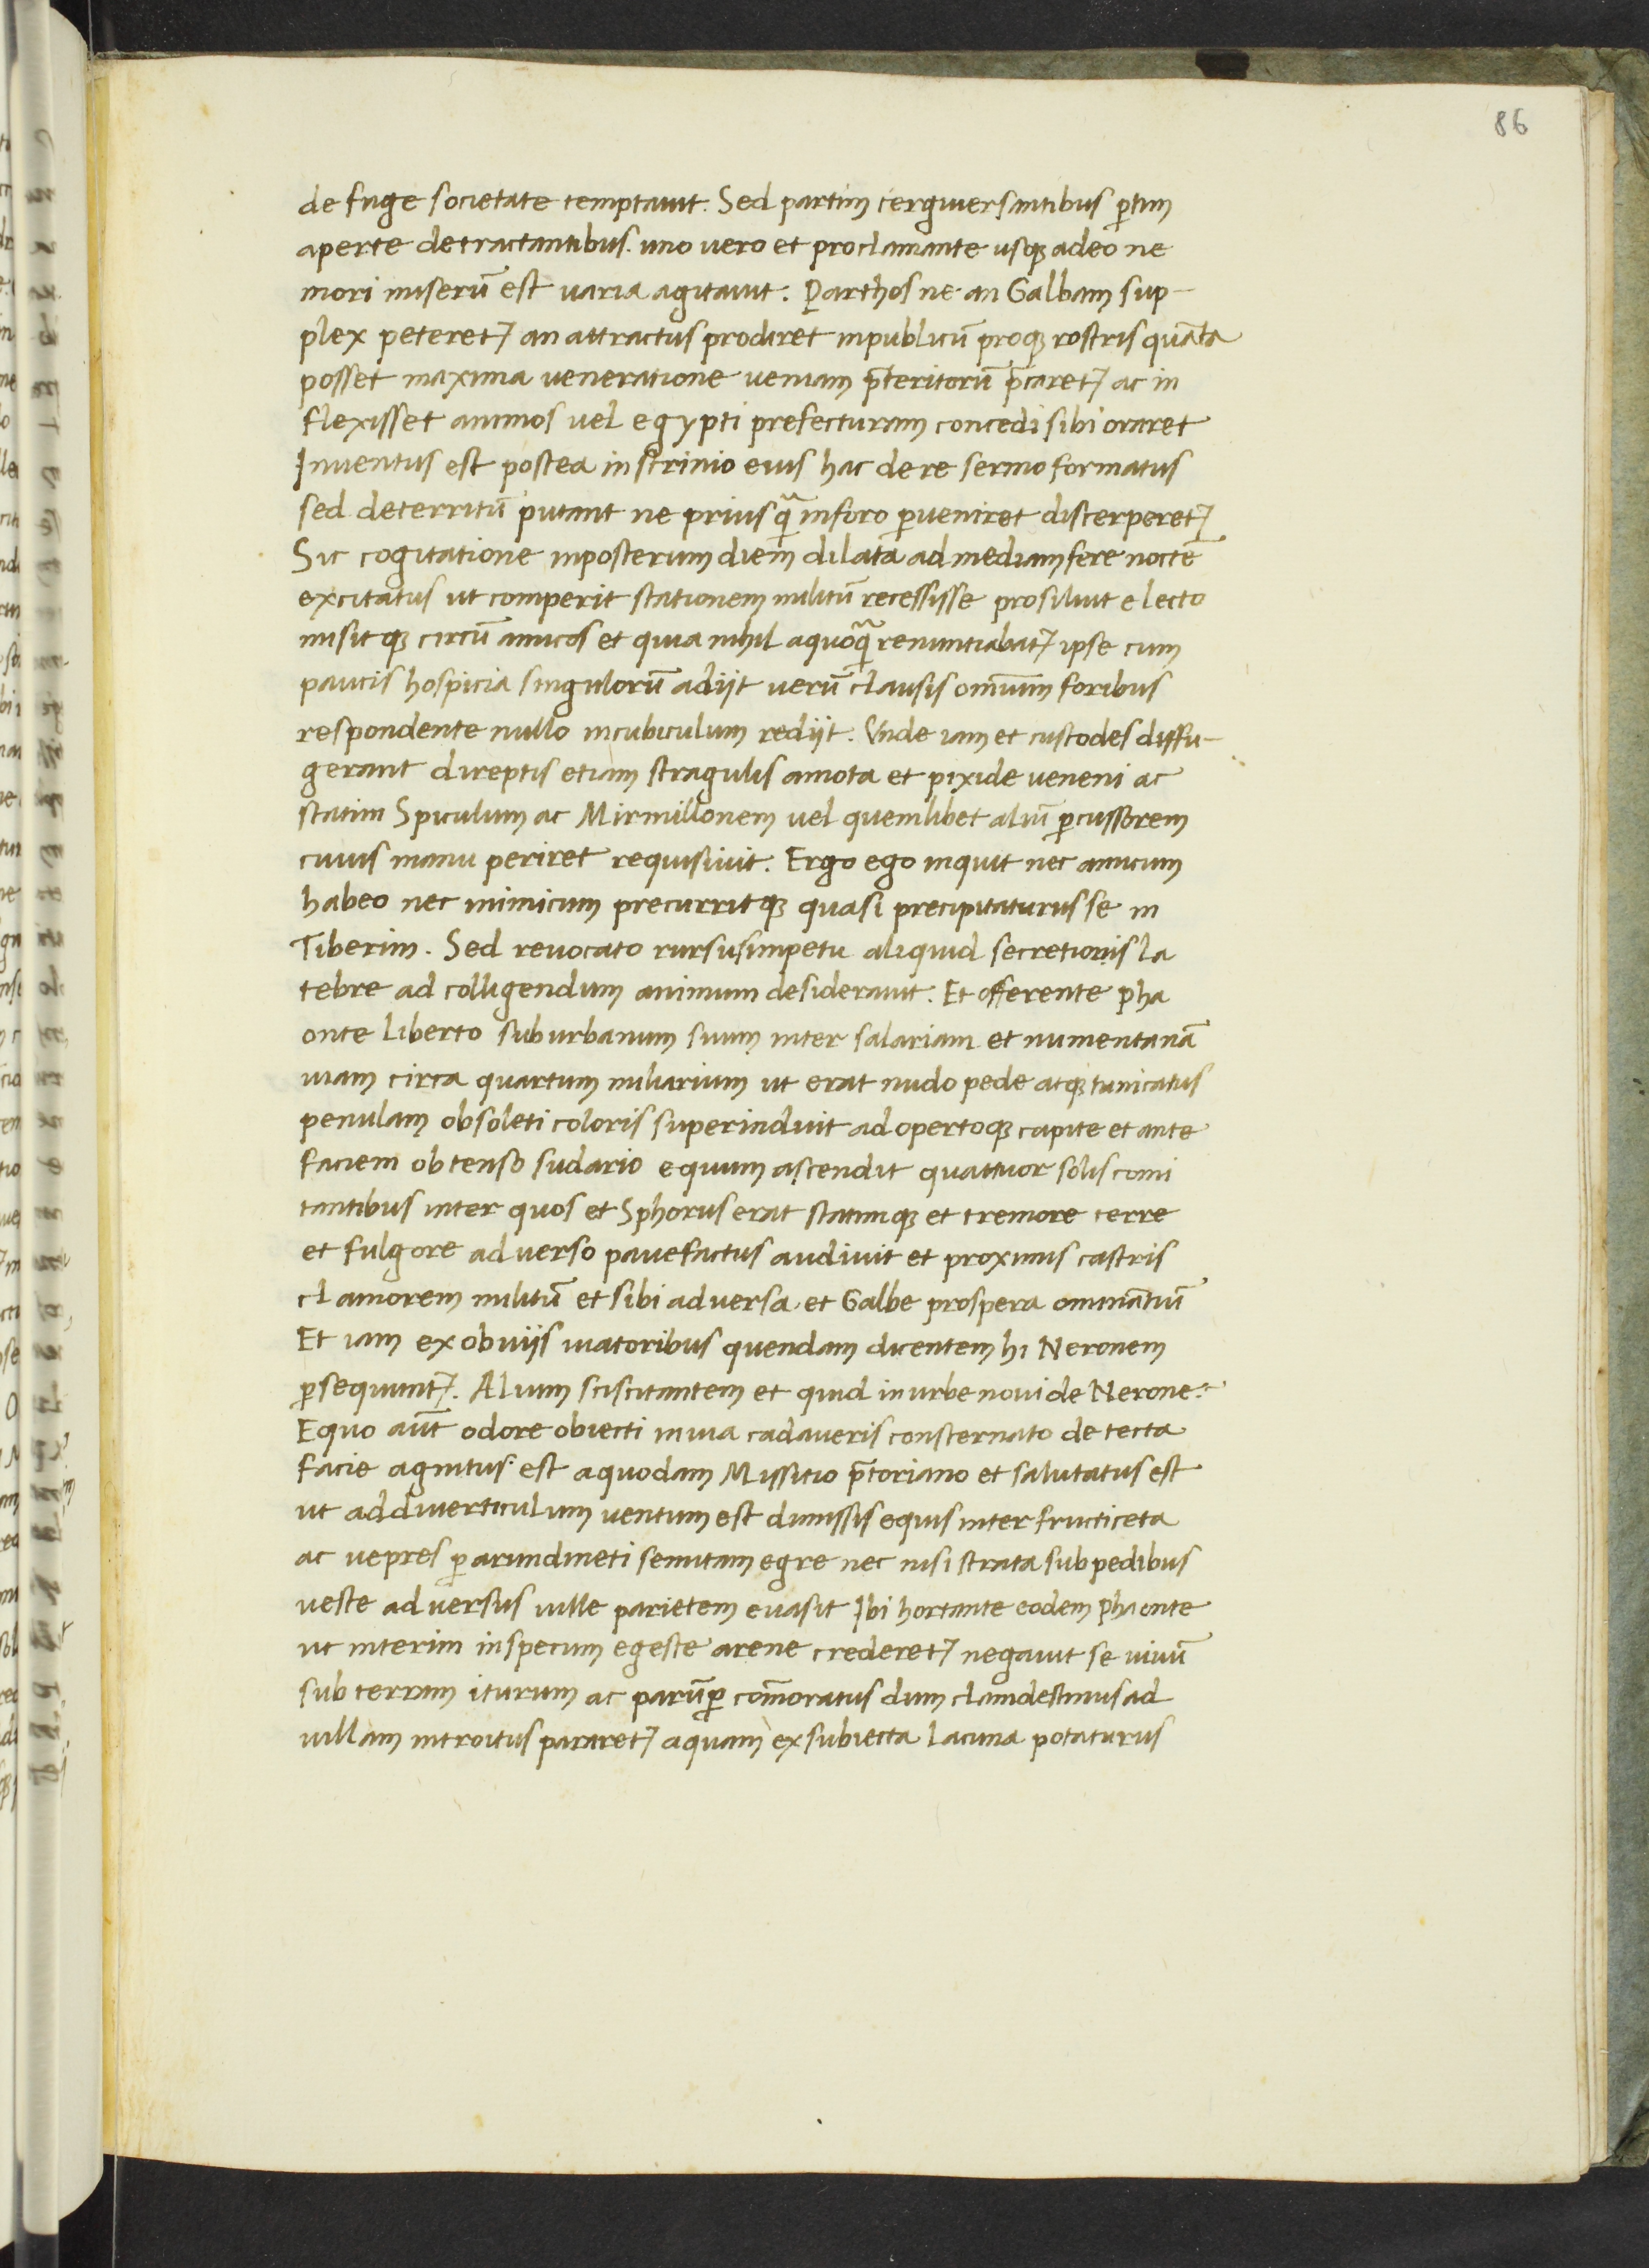 86
de fuge societate temptauit. Sed partim tergiuersantibus ꝑtim
aperte detractantibus. uno uero et proclamante usqꝫ adeo ne
mori miserū est uaria agitauit. Parthos ne an Galbam sup-
plex peteret᷑ an attractus prodiret inpublicū proqꝫ rostris quāta
posset maxima ueneratione ueniam p̄teritorū p̄caret᷑ ac in
flexisset animos uel egypti prefecturam concedi sibi oraret
Inuentus est postea in scrinio eius hac de re sermo formatus
sed deterritū putant ne priusq̄ inforo ꝑueniret discerperet᷑
Sic cogitatione inposterum diem dilata ad mediam fere noctē
excitatus ut comperit stationem militū recessisse prosiluit e lecto
misitqꝫ circū amicos et quia nihil aquoq̄ renuntiabat᷑ ipse cum
paucis hospicia singulorū adijt uerū clausis omnium foribus
respondente nullo incubiculum redijt. Vnde iam et custodes diffu-
gerant direptis etiam stragulis amota et pixide ueneni ac
statim Spiculum ac Mirmillonem uel quemlibet aliū ꝑcussorem
cuius manu periret requisiuit. Ergo ego inquit nec amicum
habeo nec inimicum precurritqꝫ quasi precipitaturus se in
Tiberim. Sed reuocato rursus impetu aliquid secretionis la
tebre ad colligendum animum desiderauit. Et offerente pha
onte liberto suburbanum suum inter salariam et numentanā
uiam circa quartum miliarium ut erat nudo pede atqꝫ tunicatus
penulam obsoleti coloris superinduit ad opertoqꝫ capite et ante
faciem obtenso sudario equum ascendit quattuor solis comi
tantibus inter quos et Sphorus erat statimqꝫ et tremore terre
et fulgore aduerso pauefactus audiuit et proximis castris
clamorem militū et sibi aduersa et Galbe prospera ominātiū
Et iam ex obuijs uiatoribus quendam dicentem hi Neronem
ꝑsequunt᷑. Alium sciscitantem et quid in urbe noui de Nerone.
Equo aūt odore obiecti inuia cadaueris consternato detecta
facie agnitus est aquodam Missitio p̄toriano et salutatus est
ut ad diuerticulum uentum est dimissis equis inter fructiceta
ac uepres ꝑ arundineti semitam egre nec nisi strata sub pedibus
ueste aduersus uille parietem euasit Ibi hortante eodem phaonte
ut interim in specum egeste arene crederet᷑ negauit se uiuū
sub terram iturum ac parūꝑ com̄oratus dum clamdestinus ad
uillam introitus pararet᷑ aquam ex subiecta lacuna potaturus